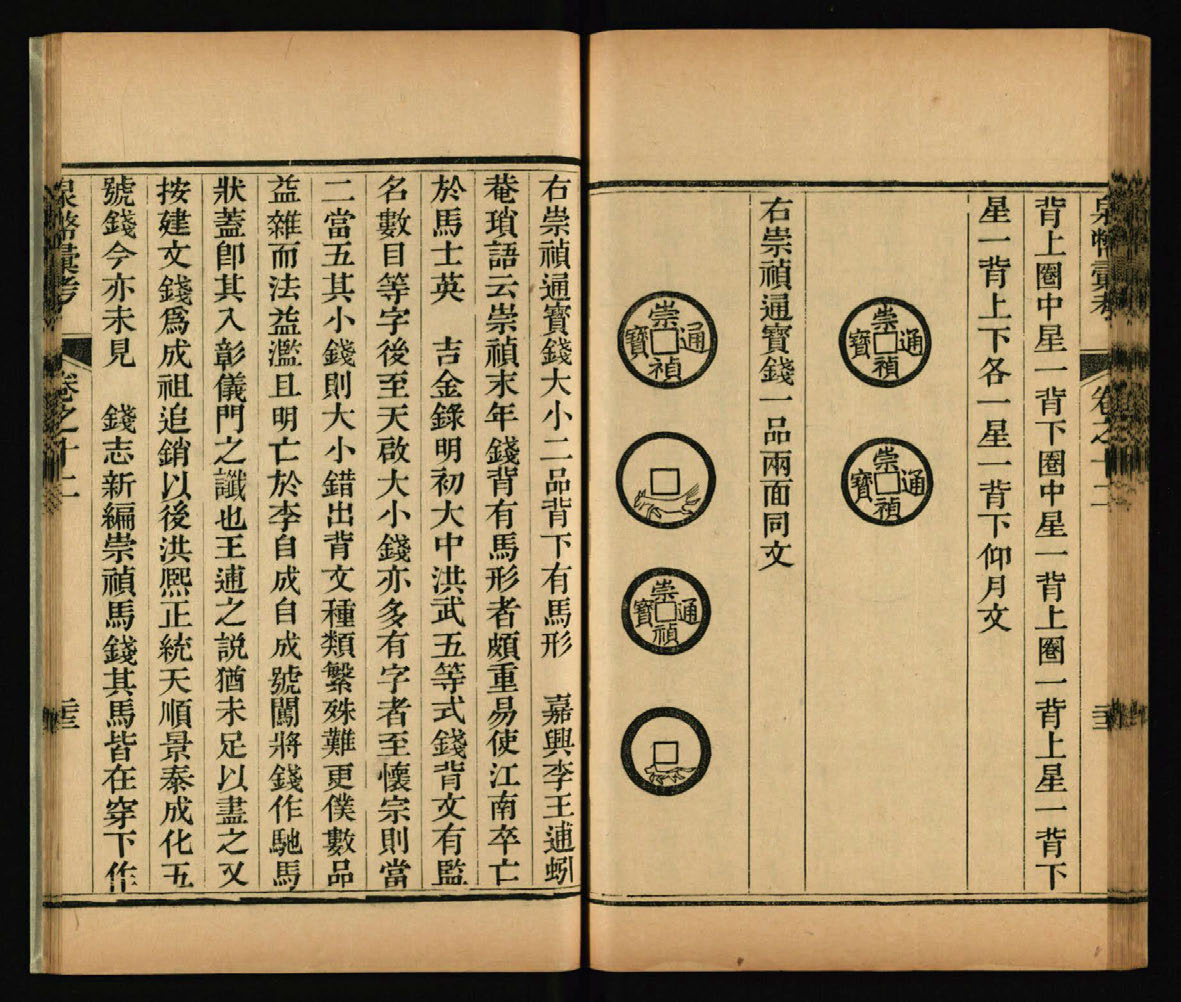 泉幣彙考 卷之十二
背上圈中星一背下圈中星一背上圈一背上星一背下
星一背上下各一星一背下仰月文
崇禎通寶
崇禎通寶
右崇禎通寶錢一品兩面同文
崇禎通寶
崇禎通寶
右崇禎通寶錢大小二品背下有馬形 嘉興李王逋蚓
菴瑣語云崇禎末年錢背有馬形者頗重易使江南卒亡
於馬士英 吉金錄明初大中洪武五等式錢背文有監
名數目等字後至天啟大小錢亦多有字者至懷宗則當
二當五其小錢則大小錯出背文種類繁殊難更僕數品
益雜而法益濫且明亡於李自成自成號闖將錢作馳馬
狀蓋卽其入彰儀門之讖也王逋之説猶未足以盡之又
按建文錢爲成祖追銷以後洪熙正統天順景泰成化五
號錢今亦未見 錢志新編崇禎馬錢其馬皆在穿下作
泉幣彙考 卷之十二